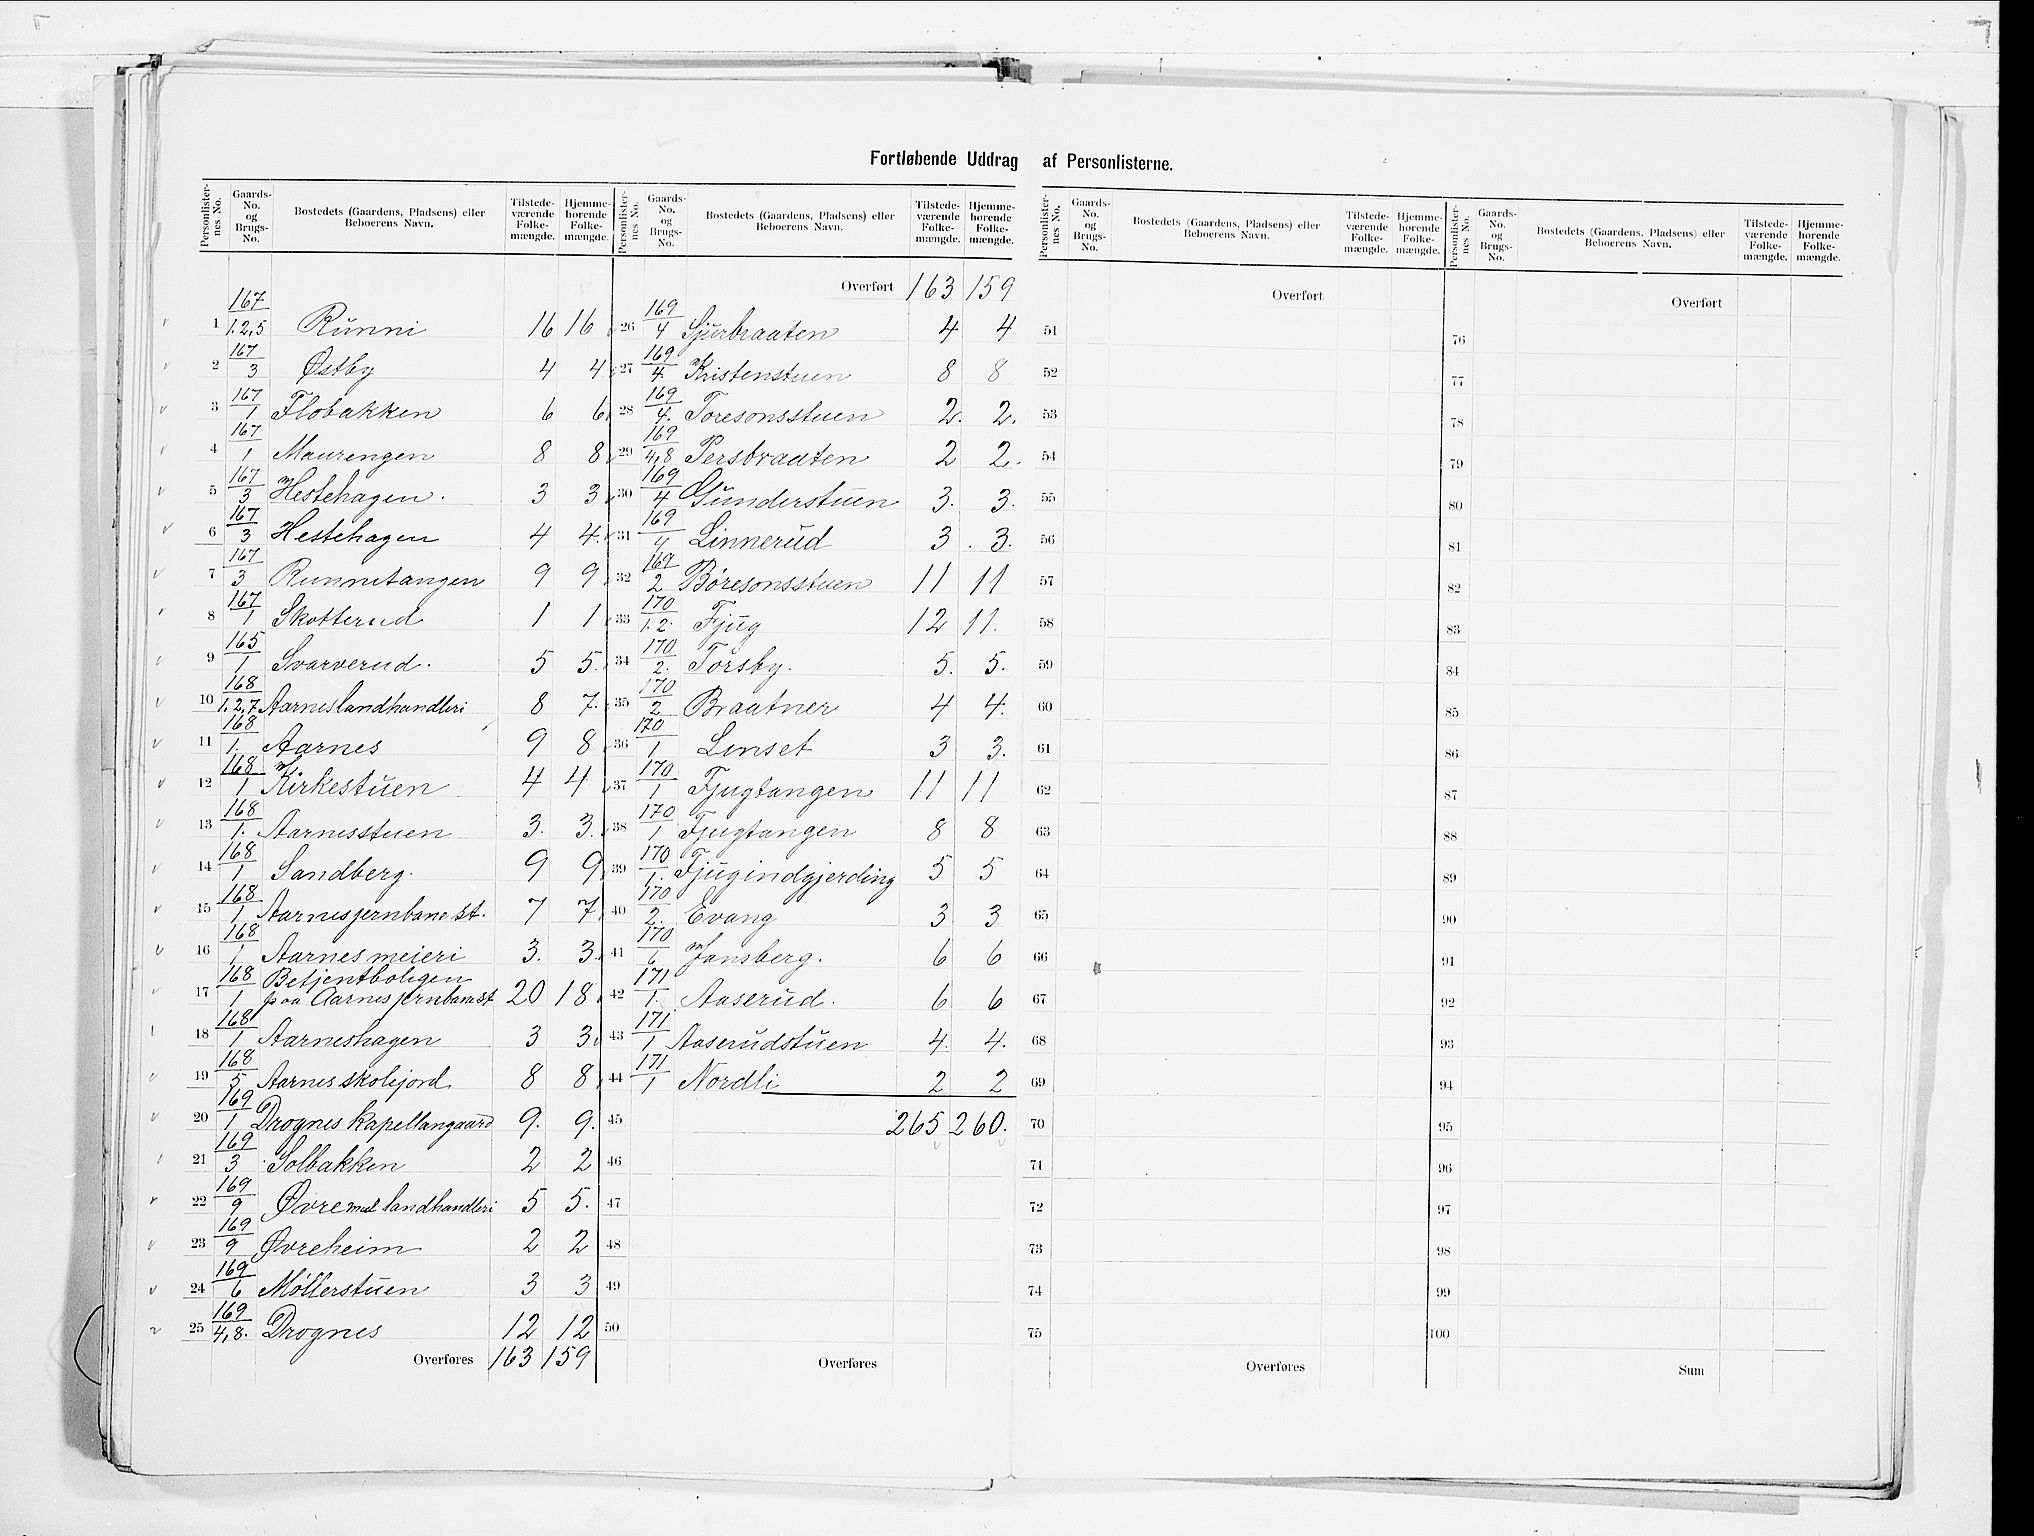 Fortløbende Uddrag af Personlisterne.
Personlister-nes No. Gaards-No. og Brugs-No. Bostedets (Gaardens, Pladsens) eller Beboerens Navn. Tilstede-værende Folke-mængde. Hjemme-hørende Folke-mængde.
1 167/1.2,5 Runni 16 16
2 167/3 Østby 4 4
3 167/1 Flobakken 6 6
4 167/1 Maurengen 8 8
5 167/3 Hestehagen. 3 3
6 167/3 Hestehagen 4 4.
7 167/3 Runnitangen 9 9
8 167/1 Skotterud 1 1
9 165/1 Svarverud. 5 5.
10 168/1.2,7 Aarnes landhandleri 8 7.
11 168/1. Aarnes 9 8
12 168/1 Kirkestuen 4 4
13 168/1. Aarnesstuen 3. 3.
14 168/1 Sandberg. 9 9
15 168/1 Aarnes jernbanest. 7 7
16 168/1 Aarnes meieri 3. 3.
17 168/1 Betjentboligen
paa Aarnes jernbanest 20 18
18 168/1 Aarneshagen 3 3
19 168/5 Aarnes skolejord 8 8
20 169/1 Drognes kapellangaard 9. 9.
21 169/3 Solbakken 2 2
22 169/9 Øvrem landhandleri 5 5.
23 169/9 Øvreheim 2 2
24 169/6 Møllerstuen 3 3
25 169/4,8. Drognes 12 12
Overføres 163 159
Personlister-nes No. Gaards-No. og Brugs-No. Bostedets (Gaardens, Pladsens) eller Beboerens Navn. Tilstede-værende Folke-mængde. Hjemme-hørende Folke-mængde.
Overført 163 159
26 169/4 Sjurbraaten 4 4
27 169/4. Kristenstuen 8 8
28 169/4. Toresonsstuen 2. 2.
29 169/4,8 Persbraaten 2 2.
30 169/4 Gunderstuen 3. 3.
31 169/4 Linnerud 3. 3.
32 169/2 Børesonsstuen 11 11
33 170/1.2. Fjug 12 11.
34 170/2. Torsby. 5. 5.
35 170/2 Braatner 4 4.
36 170/1 Linset 3 3.
37 170/1 Fjugtangen 11 11
38 170/1 Fjugtangen 8 8
39 170/1. Fjugindgjerding 5 5
40 170/2. Evang 3 3
41 170/6 Jansberg. 6 6
42 171/1. Aaserud. 6 6
43 171/1 Aaserudstuen 4. 4.
44 171/1 Nordli 2 2
45 265 260.
46
47
48
49
50
Overføres
Personlister-nes No. Gaards-No. og Brugs-No. Bostedets (Gaardens, Pladsens) eller Beboerens Navn. Tilstede-værende Folke-mængde. Hjemme-hørende Folke-mængde.
Overført
51
52
53
54
55
56
57
58
59
60
61
62
63
64
65
66
67
68
69
70
71
72
73
74
75
Overføres
Personlister-nes No. Gaards-No. og Brugs-No. Bostedets (Gaardens, Pladsens) eller Beboerens Navn. Tilstede-værende Folke-mængde. Hjemme-hørende Folke-mængde.
Overført
76
77
78
79
80
81
82
83
84
85
86
87
88
89
90
91
92
93
94
95
96
97
98
99
100
Sum